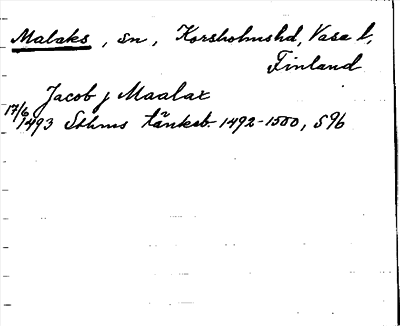 Malaks, sn, Korsholmshd, Vasa l,
Finland
Jacob j Maalax
17/6 1493 Sthms tänkeb. 1492-1500, S 96